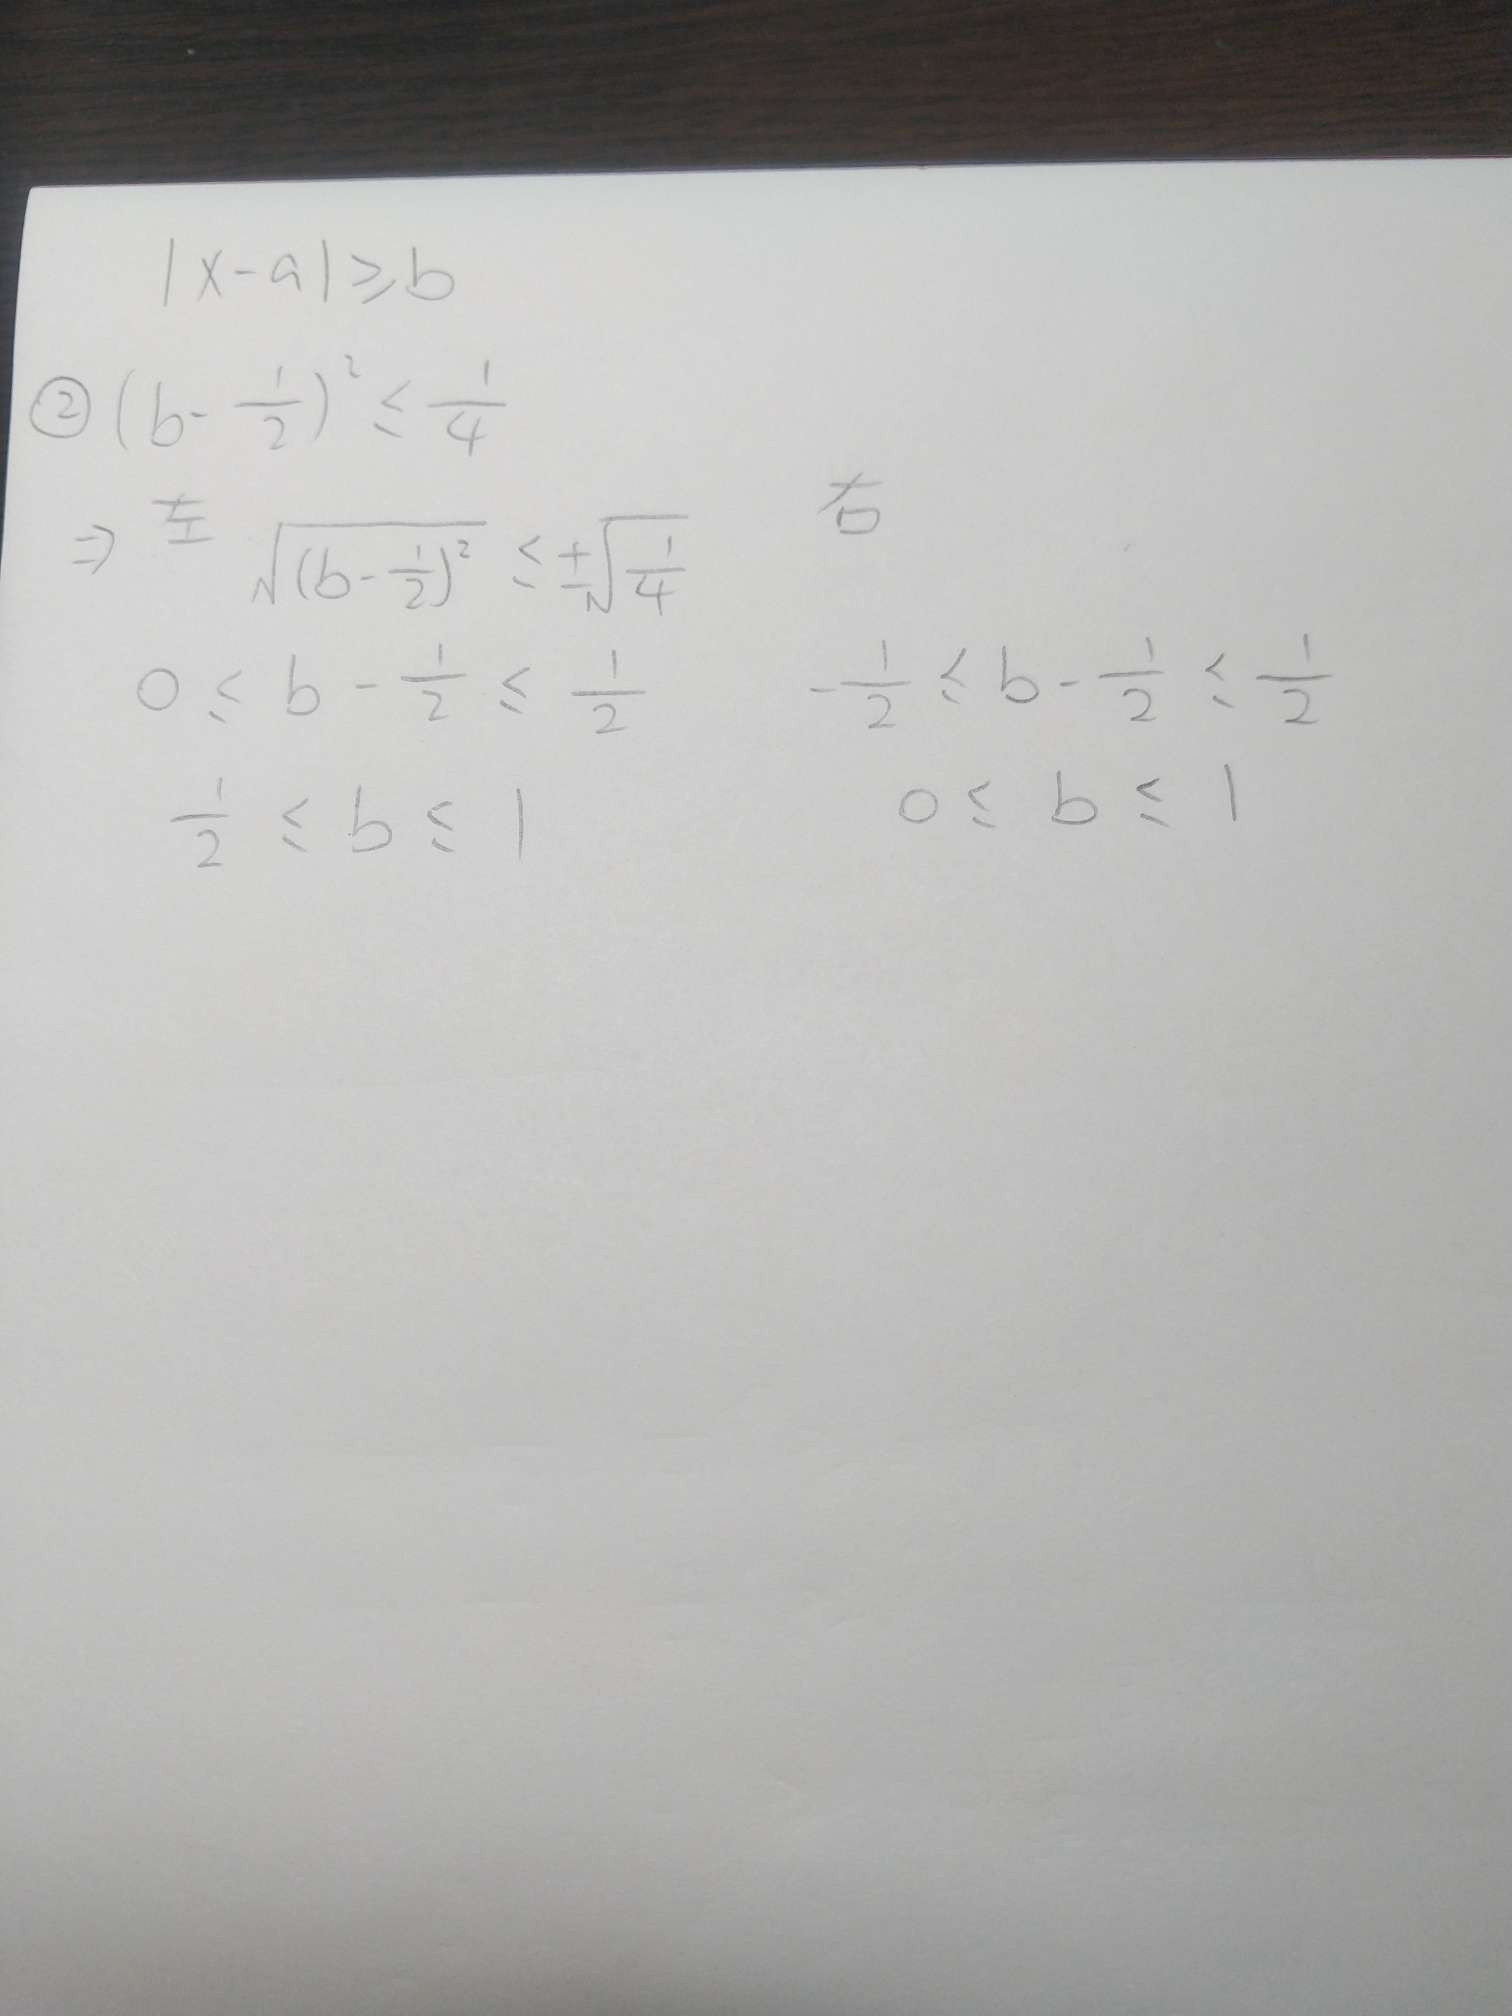 |x-a|≥b
② (b-1/2)² ≤ 1/4
⇒ 左 √(b-1/2)² ≤ ±√1/4
0 ≤ b - 1/2 ≤ 1/2
1/2 ≤ b ≤ 1
右
-1/2 ≤ b - 1/2 ≤ 1/2
0 ≤ b ≤ 1